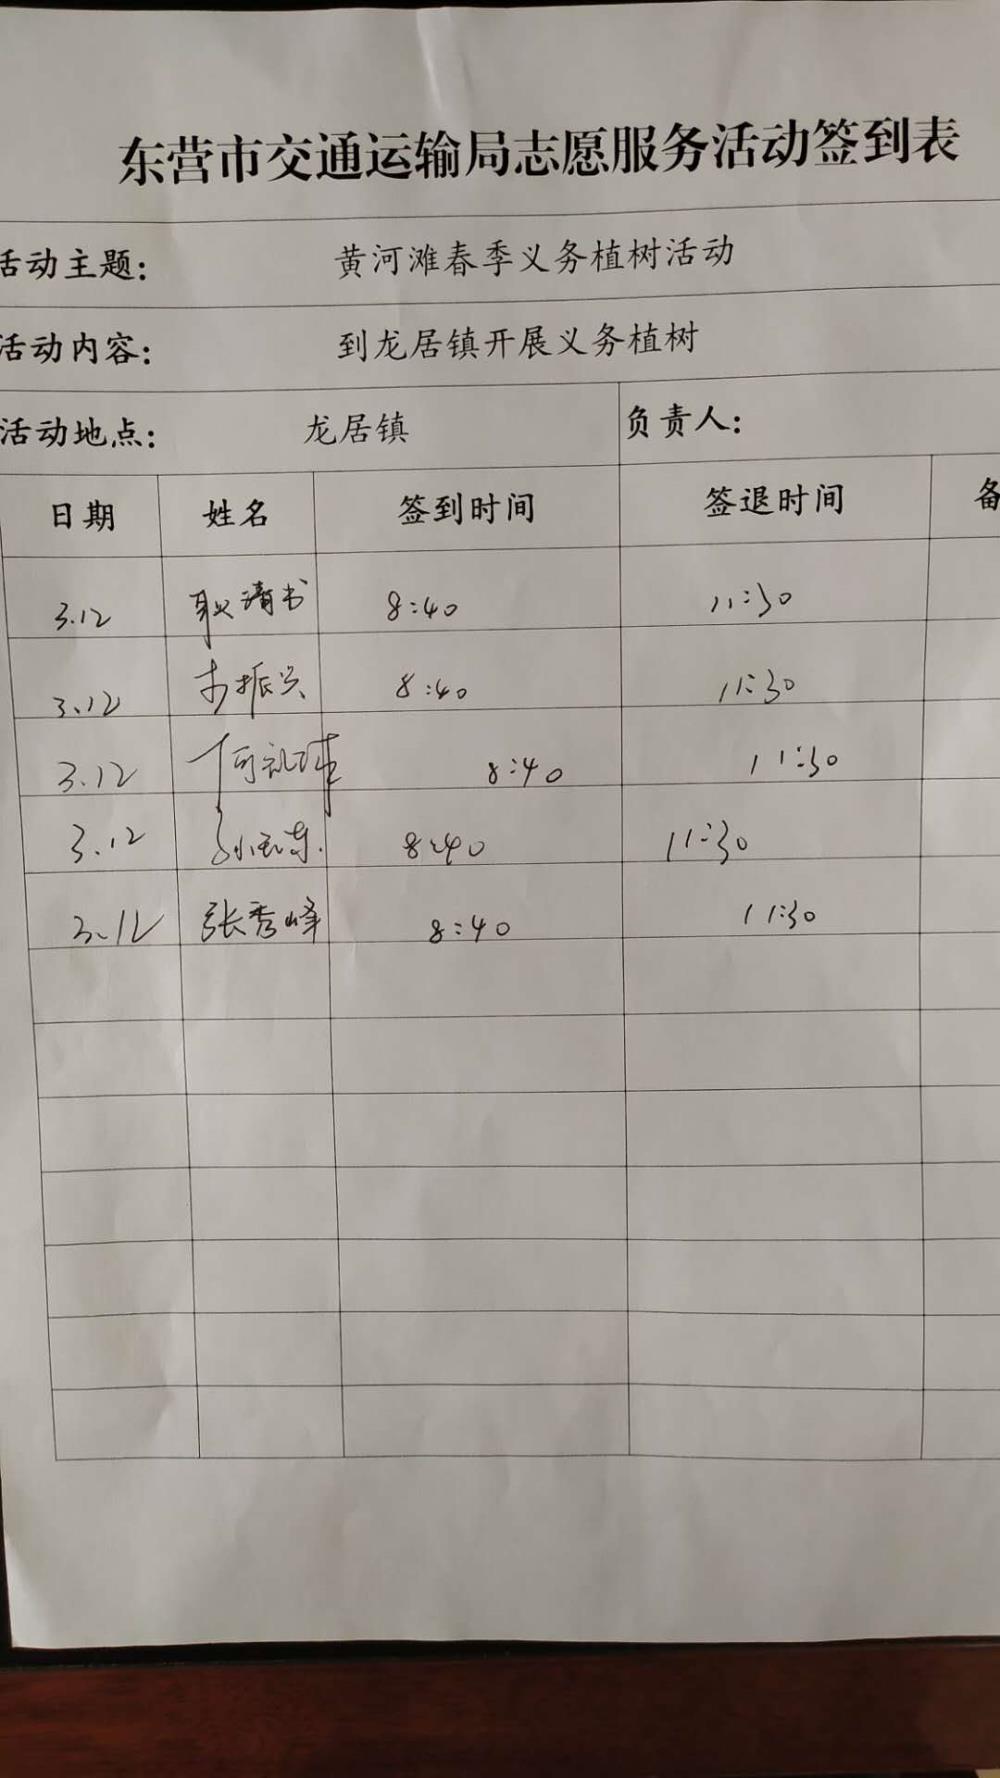 东营市交通运输局志愿服务活动签到表
活动主题： 黄河滩春季义务植树活动
活动内容： 到龙居镇开展义务植树
活动地点： 龙居镇 负责人：
日期 姓名 签到时间 签退时间 备
3.12 耿清书 8:40 11:30
3.12 振兴 8:40 11:30
3.12 何 8:40 11:30
3.12 8:40 11:30
3.12 张秀峰 8:40 11:30